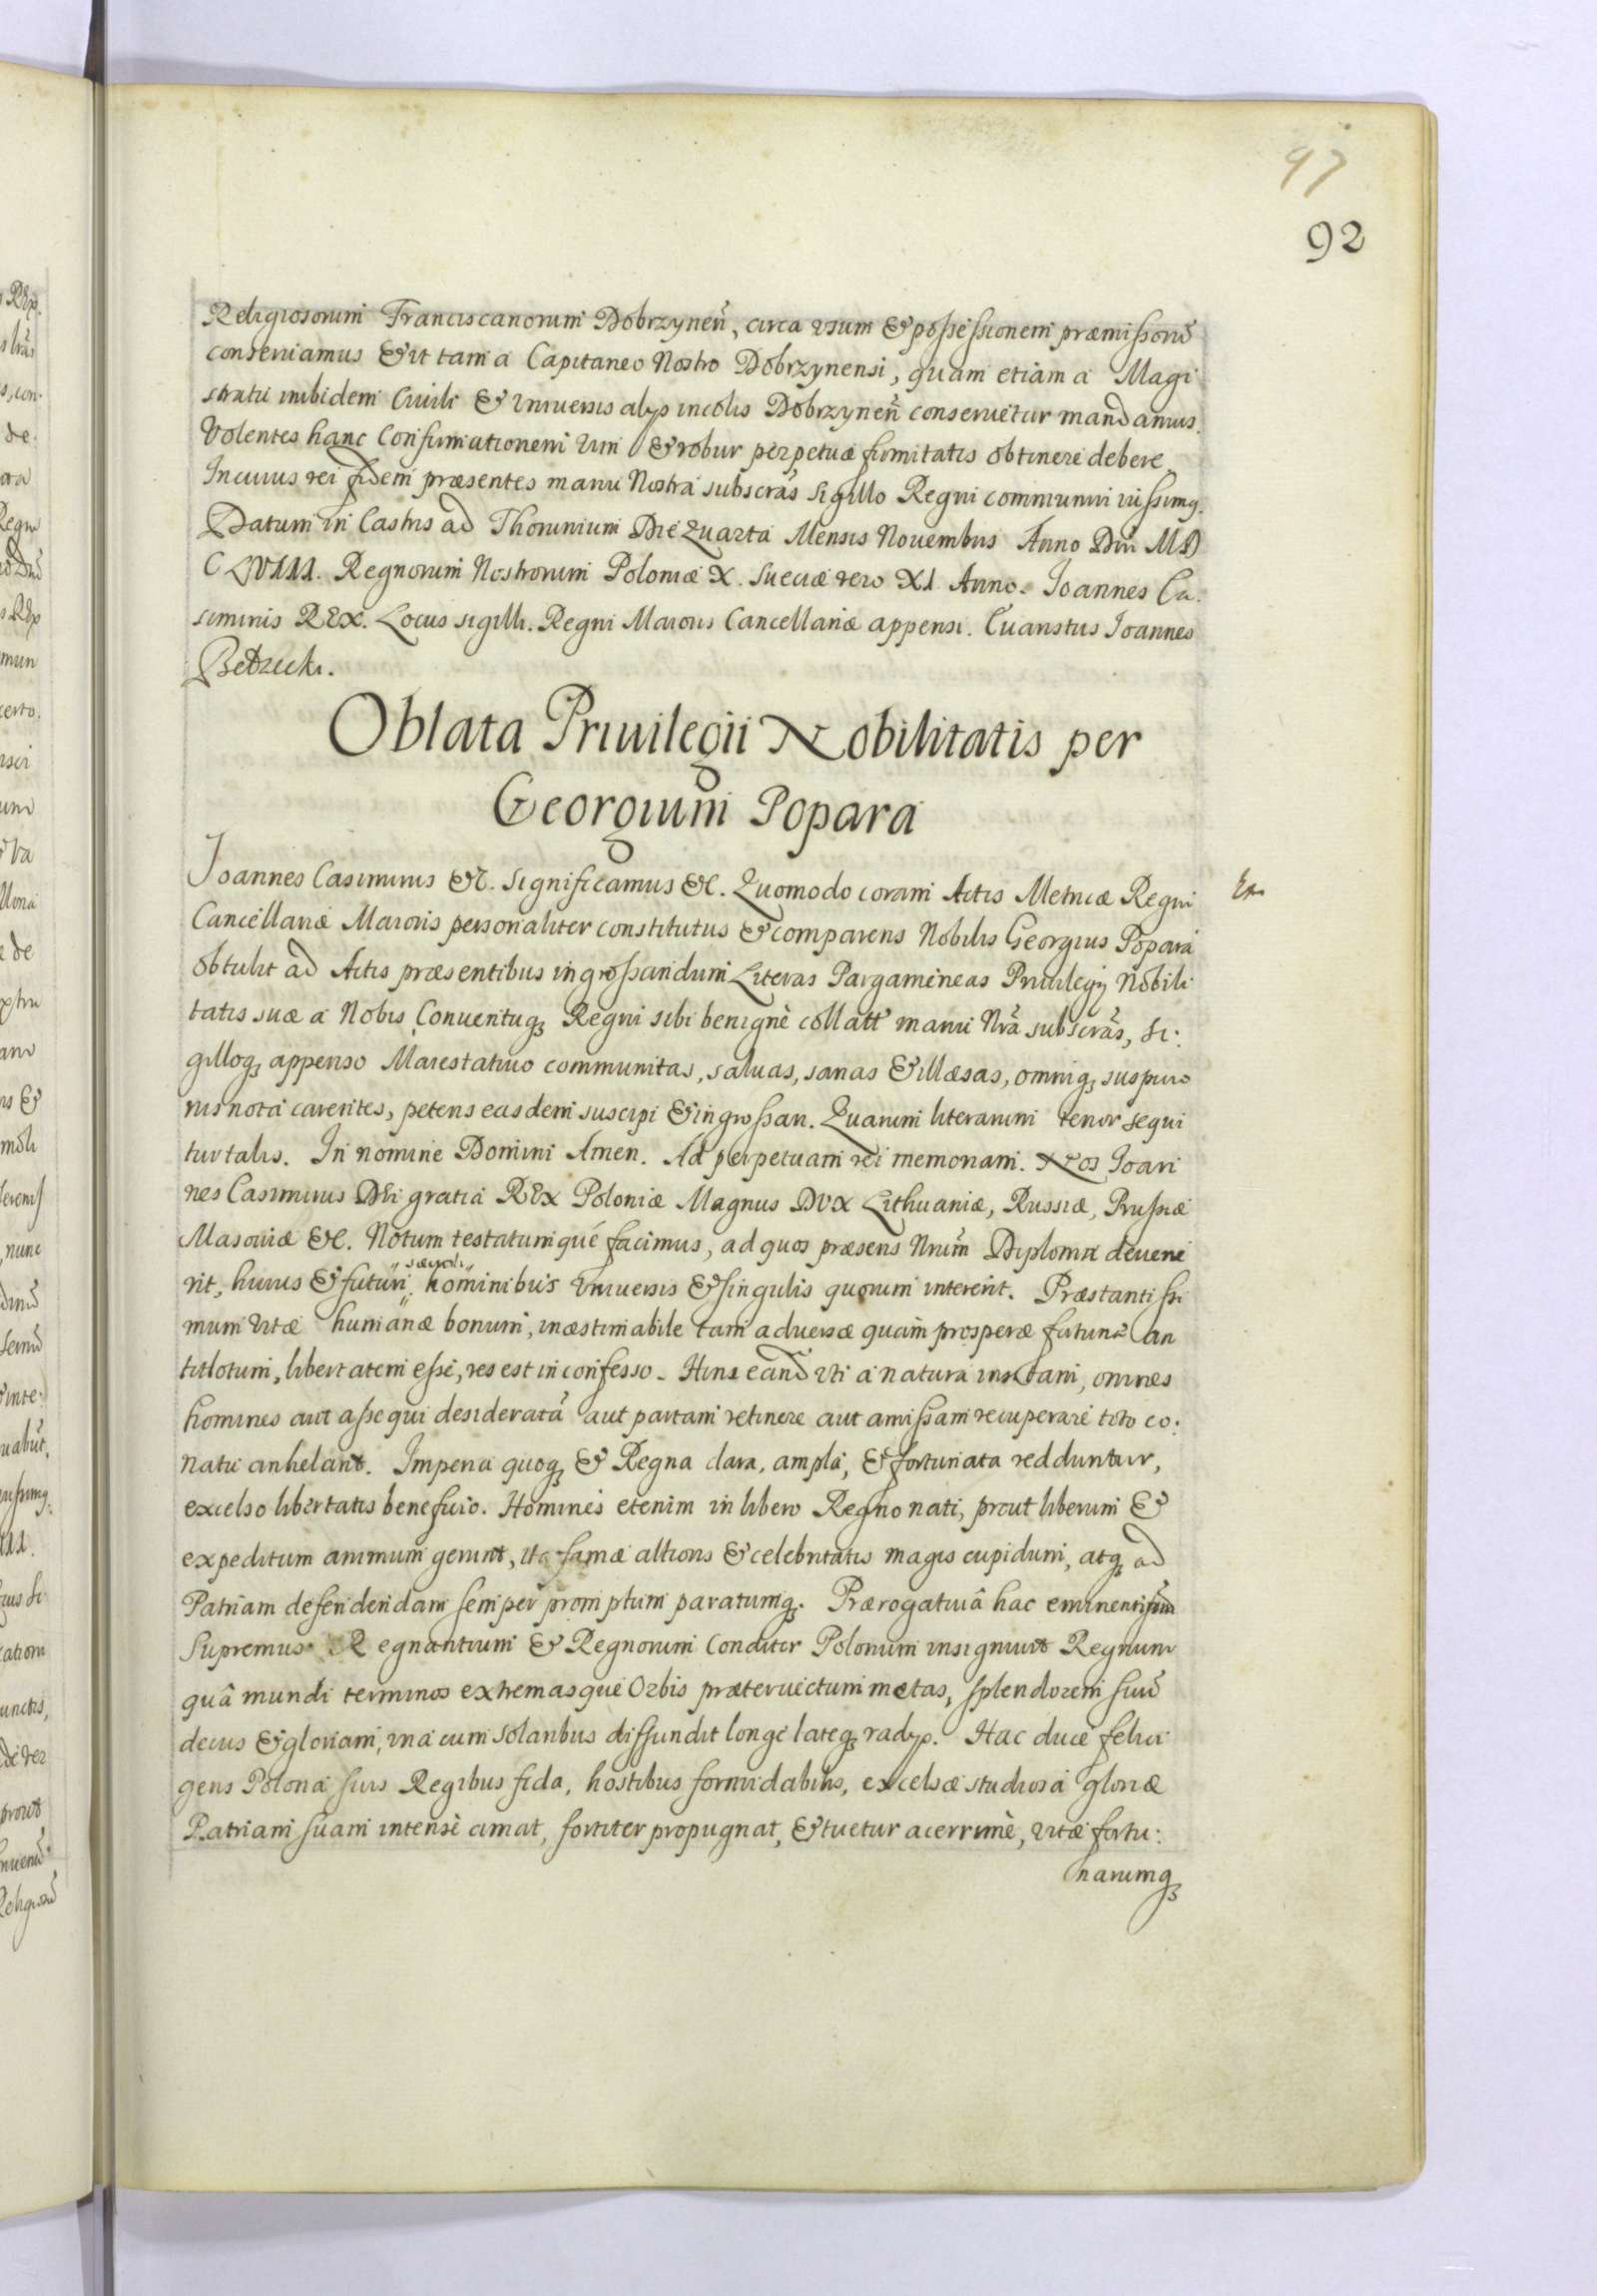 97
92
Religiosorum Franciscanorum Dobrzynen̄, circa vsum & possessionem præmissorū
conseruamus & vt tam a Capitaneo Nostro Dobrzynensi, quam etiam a Magi
stratu inibidem Ciuili & vniuersis alijs incolis Dobrzynen̄ conseruetur mandamus.
Volentes hanc Confirmationem vim & robur perpetuæ firmitatis obtinere debere.
In cuius rei fidem præsentes manu Nostra subscrās sigillo Regni communiri iussimq.
Datum in Castris ad Thorunium Die Quarta Mensis Nouembris Anno Dni MD
CLVIII. Regnorum Nostrorum Poloniæ X. Sueciæ vero XI Anno. Joannes Ca.
simirus REX. Locus sigilli. Regni Maioris Cancellariæ appensi. Euaristus Joannes
Bełzecki.
Oblata Priuilegii Nobilitatis per
Georgium Popara
Joannes Casimirus &c. Significamus &c. Quomodo coram Actis Metricæ Regni
Cancellariæ Maioris personaliter constitutus & comparens Nobilis Georgius Popara
obtulit ad Actis præsentibus ingrossandum Literas Pargameneas Priuilegij Nobili
tatis suæ a Nobis Conuentuq Regni sibi benignè collatt manu Nrā subscrās, si:
gilloq appenso Maiestatiuo communitas, saluas, sanas & illæsas, omniq suspicio
nis nota carentes, petens easdem suscipi & ingrossari. Quarum literarum tenor sequi
tur talis. In nomine Domini Amen. Ad perpetuam rei memoriam. Nos Joan
nes Casimirus DEi gratia REX Poloniæ Magnus DVX Lithuaniæ, Russiæ, Prussiæ
Masouiæ &c. Notum testatumqué facimus, ad quos præsens Nrūm Diploma deuene
rit, huius & futuri sæculi hominibus vniuersis & singulis quorum intererit. Præstantissi
mum vitæ humanæ bonum, inæstimabile tam aduersæ quam prosperæ fortunæ an
titlotum, libertatem esse, res est in confesso. Hinc eand vti a natura insitam, omnes
homines aut assequi desideratā aut partam retinere aut amissam recuperare toto co:
natu anhelant. Imperia quoq & Regna clara, ampla, & fortunata redduntur,
excelso libertatis beneficio. Homines etenim in libero Regno nati, prout liberum &
expeditum animum gerunt, ita famæ altioris & celebritatis magis cupidum, atq ad
Patriam defendendam semper promptum paratumq. Prærogatiuâ hac eminentissima
Supremus Regnantium & Regnorum Conditor Polonum insigniuit Regnum
quâ mundi terminos extremasque Orbis præteruectum metas, splendorem suū
decus & gloriam, vna cum solaribus diffundit longe lateq radijs. Hac duce felici
gens Polona suis Regibus fida, hostibus formidabilis, excelsæ studiosa gloriæ
Patriam suam intensè amat, fortiter propugnat, & tuetur acerrimè, vitæ fortu:
narumq